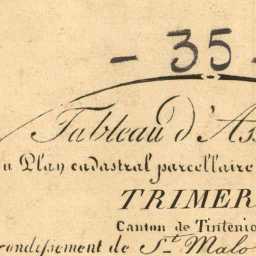 - 35 -
Tableau d'Ass
u Plan cadastral parcellaire
TRIMER
Canton de Tinténia
rondissement de St. Malo